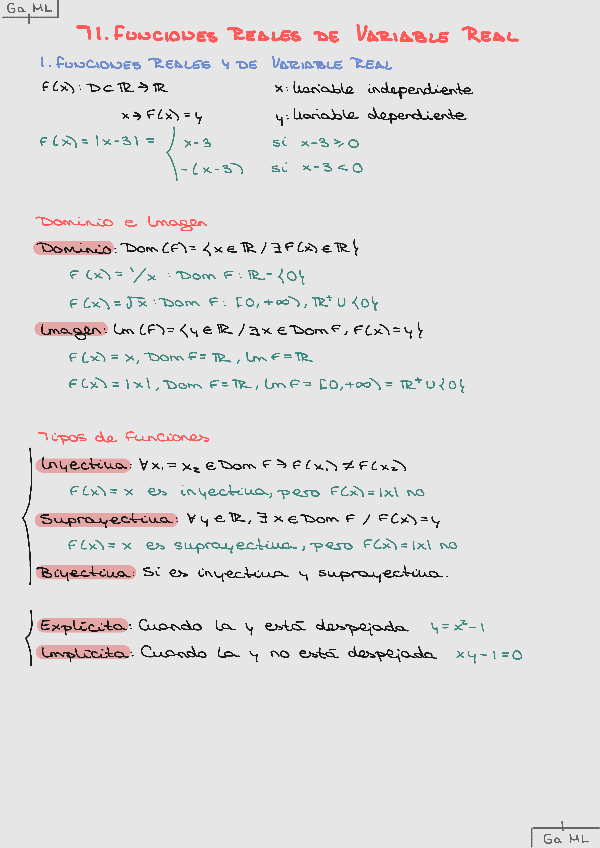 Ga ML
71. FUNCIONES REALES DE VARIABLE REAL
1. FUNCIONES REALES Y DE VARIABLE REAL
F(x): D⊂ℝ→ℝ x: Variable independiente
x→F(x)=y y: Variable dependiente
F(x)=|x-3|= { x-3 si x-3≥0
-(x-3) si x-3<0
Dominio e Imagen
Dominio: Dom(F)={x∈ℝ/∃F(x)∈ℝ}
F(x)=1/x : Dom F: ℝ-{0}
F(x)=√x : Dom F: [0,+∞), ℝ⁺∪{0}
Imagen: Im(F)={y∈ℝ/∃x∈Dom F, F(x)=y}
F(x)=x, Dom F=ℝ, Im F=ℝ
F(x)=|x|, Dom F=ℝ, Im F=[0,+∞)=ℝ⁺∪{0}
Tipos de funciones
Inyectiva: ∀x₁=x₂∈Dom F→F(x₁)≠F(x₂)
F(x)=x es inyectiva, pero F(x)=|x| no
Suprayectiva: ∀y∈ℝ, ∃x∈Dom F / F(x)=y
F(x)=x es suprayectiva, pero F(x)=|x| no
Biyectiva: Si es inyectiva y suprayectiva.
Explícita: Cuando la y está despejada y=x²-1
Implícita: Cuando la y no está despejada xy-1=0
Ga ML